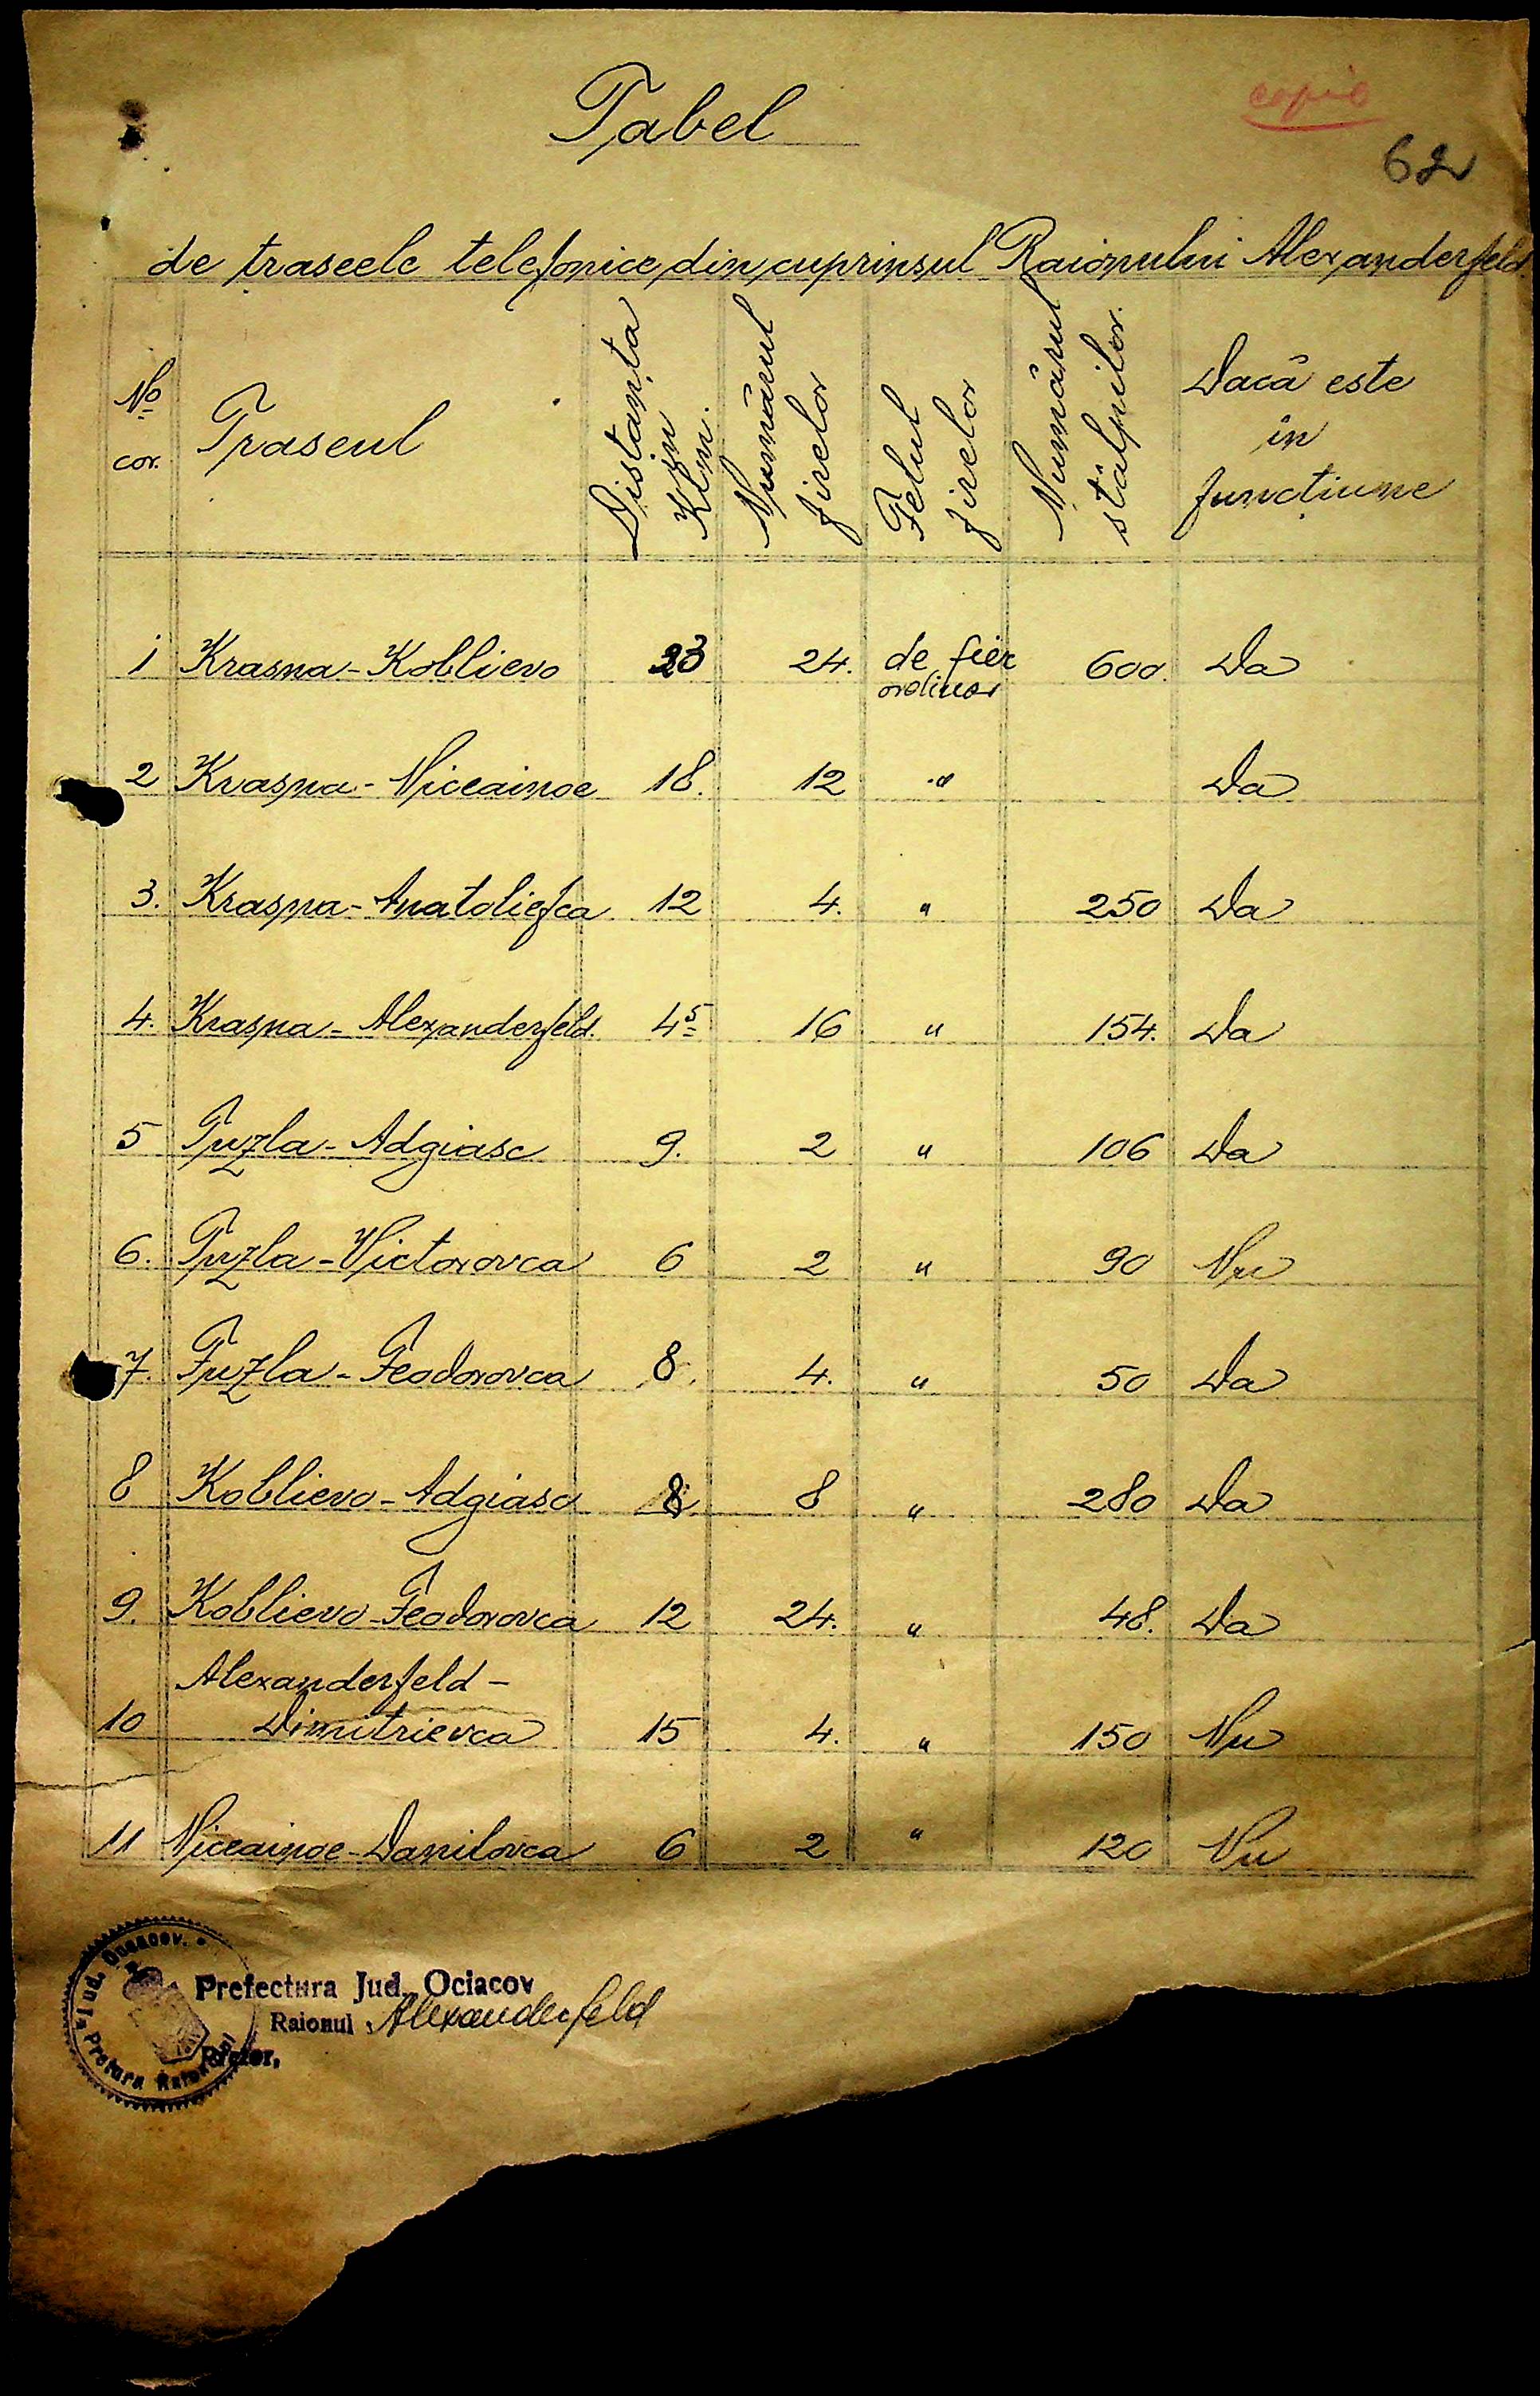 copie
Tabel
62
de traseele telefonice din cuprinsul Raionului Alexanderfeld.
No cor. Traseul Distanța în Klm. Numărul firelor Felul firelor Numărul stâlpilor. Dacă este în funcțiune
1 Krasna-Koblievo 23 24. de fier ordinar 600. Da
2 Krasna-Niceainoe 18. 12 " Da
3. Krasna-Anatoliefca 12 4. " 250 Da
4. Krasna-Alexanderfeld. 4⁵ 16 " 154. Da
5 Tuzla-Adgiasc 9. 2 " 106 Da
6. Tuzla-Victorovca 6 2 " 90 Nu
7. Tuzla-Feodorovca 8. 4. " 50 Da
8 Koblievo-Adgiasc 8 8 " 280 Da
9. Koblievo-Feodorovca 12 24. " 48. Da
Alexanderfeld-
10 Dimitrievca 15 4. " 150 Nu
11 Niceainoe-Danilovca 6 2 " 120 Nu
Prefectura Jud. Ociacov
Raionul Alexanderfeld
Pretor,
Jud. Oceacov. Pretura Raionului